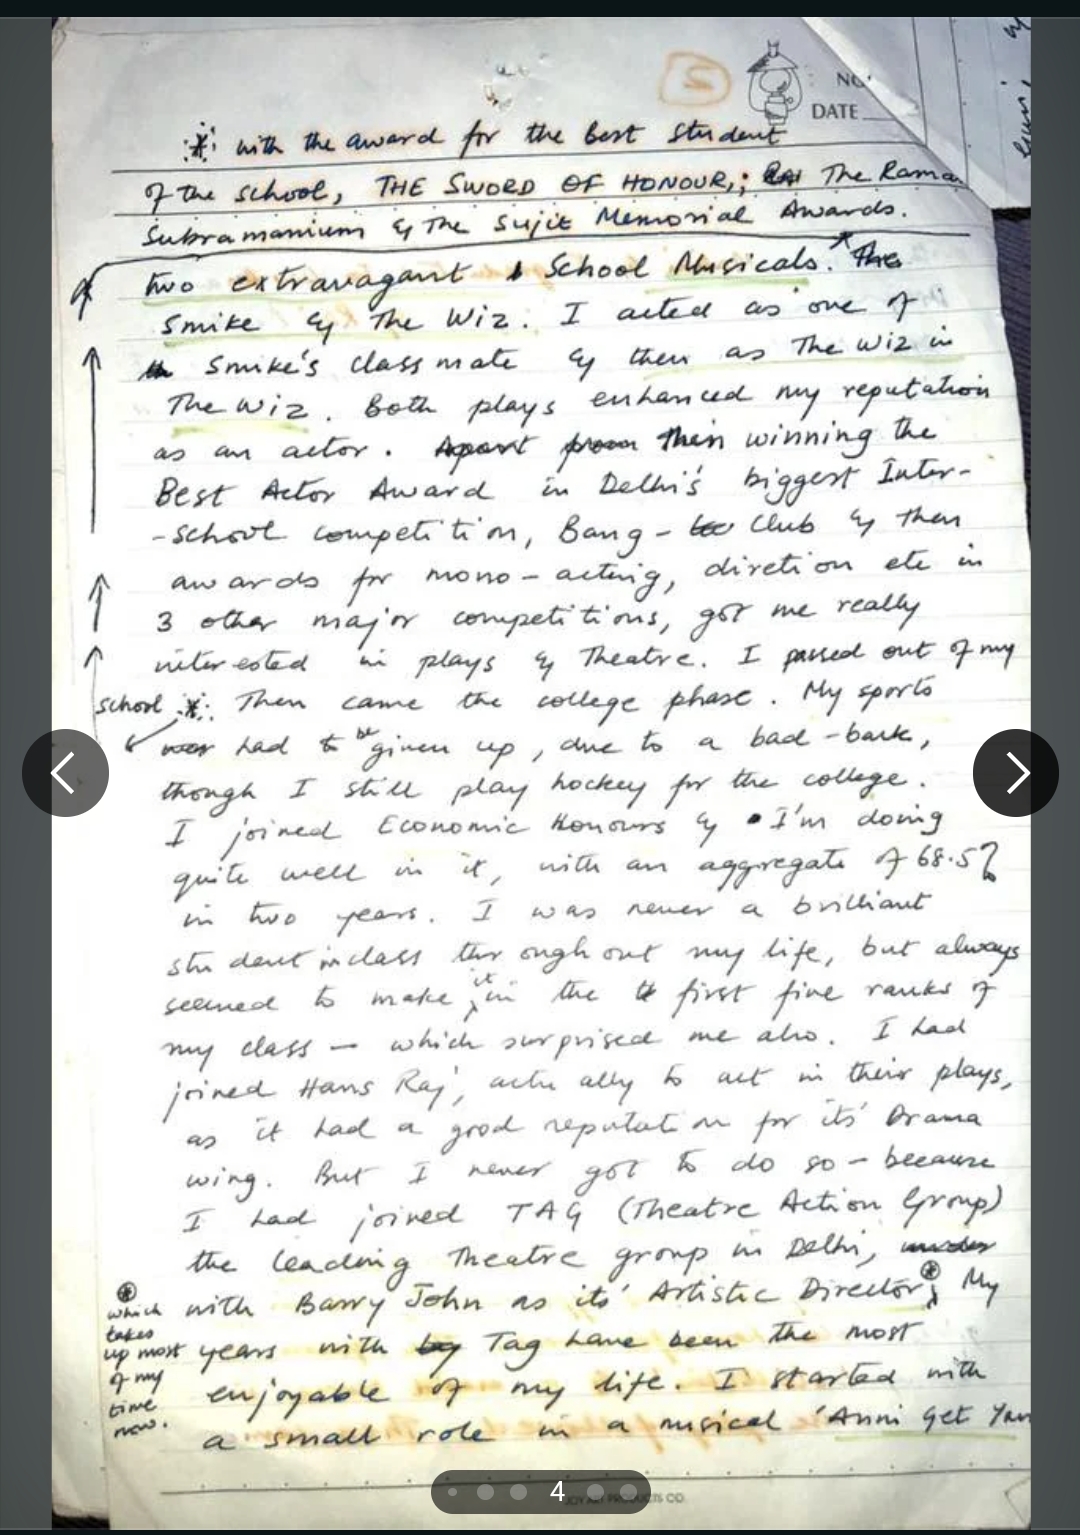 2
NO
DATE
* with the award for the best student
of the school, THE SWORD OF HONOUR,; The Raman
Subramanium & The Sujit Memorial Awards.
two extravagant School Musicals. The
Smike & The Wiz. I acted as one of
Smike's classmate & then as The Wiz in
The Wiz. Both plays enhanced my reputation
as an actor. Apart from Then winning the
Best Actor Award in Delhi's biggest Inter-
-school competition, Bang- Club & then
awards for mono-acting, diretion etc in
3 other major competitions, got me really
interested in plays & Theatre. I passed out of my
school * Then came the college phase. My sports
had to be given up, due to a bad-back,
though I still play hockey for the college.
I joined Economic Honours & I'm doing
quite well in it, with an aggregate of 68.5%
in two years. I was never a brilliant
student in class throughout my life, but always
seemed to make it in the first five ranks of
my class — which surprised me also. I had
joined Hans Raj, actually to act in their plays,
as it had a good reputation for its' Drama
wing. But I never got to do so — because
I had joined TAG (Theatre Action Group)
the leading Theatre group in Delhi, under
with Barry John as its' Artistic Director; My
years with by Tag have been the most
enjoyable of my life. I started with
a small role in a musical 'Anni Get Your
which
takes
up most
of my
time
now.
4
JOY ART PRODUCTS CO.